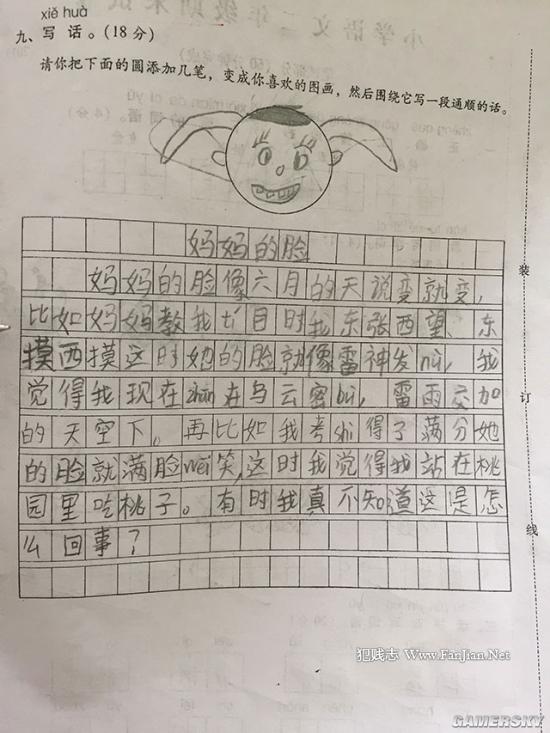 xiě huà
九、写 话。(18分)
请你把下面的圆添加几笔,变成你喜欢的图画,然后围绕它写一段通顺的话。
妈妈的脸
妈妈的脸像六月的天说变就变,
比如妈妈教我tí目时我东张西望、东
摸西摸这时她的脸就像雷神发nù,我
觉得我现在zhàn在乌云密bù,雷雨交加
的天空下。再比如我考shì得了满分她
的脸就满脸wēi笑,这时我觉得我站在桃
园里吃桃子。有时我真不知道这是怎
么回事?
装
订
线
犯贱志 www.FanJian.Net
GAMERSKY